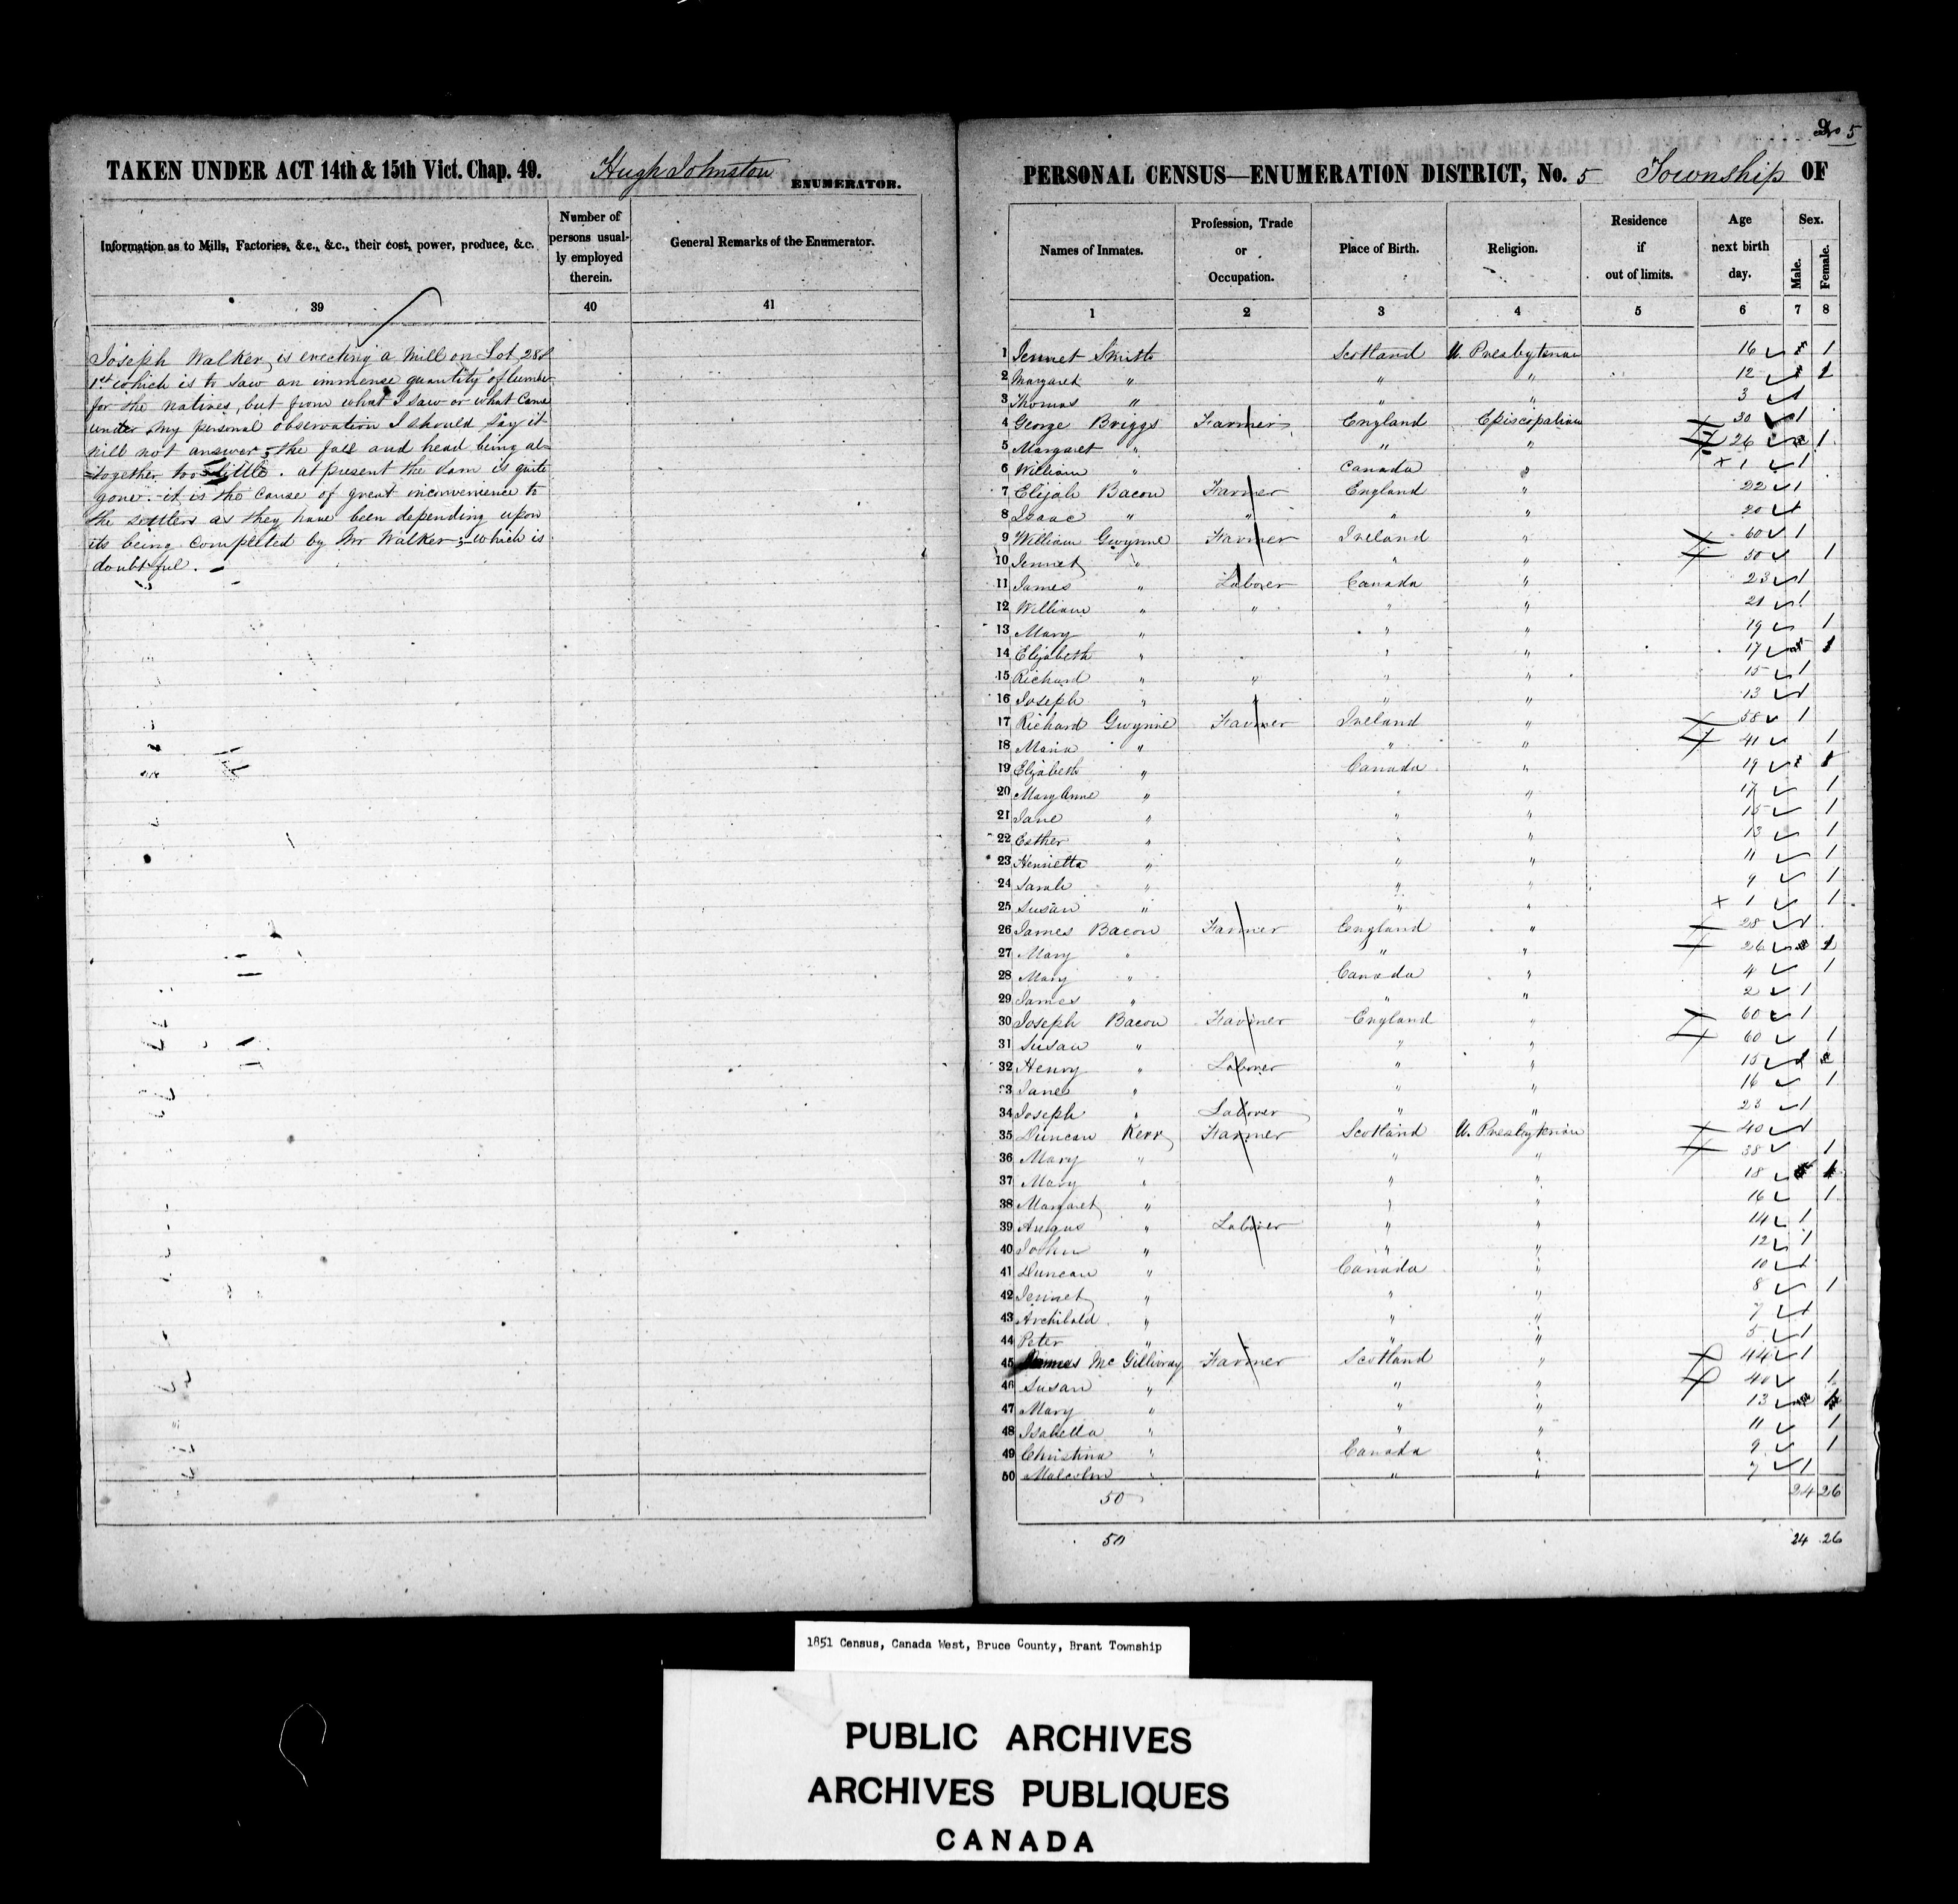 TAKEN UNDER ACT 14th & 15th Vict. Chap. 49. Hugh Johnston ENUMERATOR.
Information as to Mills, Factories, &c., &c., their cost, power, produce, &c. | Number of persons usually employed therein. | General Remarks of the Enumerator.
39 40 41
Joseph Walker, is erecting a Mill on Lot 28 &
1st which is to saw an immense quantity of lumber
for the natives, but from what I saw or what came
under my personal observation I should say it
will not answer, the fall and head being al=
=together too little. at present the dam is quite
gone. it is the cause of great inconvenience to
the settlers as they have been depending upon
its being completed by Mr Walker;-which is
doubtful.
No 5
PERSONAL CENSUS—ENUMERATION DISTRICT, No. 5 Township OF
Names of Inmates. | Profession, Trade or Occupation. | Place of Birth. | Religion. | Residence if out of limits. | Age next birth day. | Sex. Male. Female.
1 2 3 4 5 6 7 8
1 Jennet Smith Scotland U. Presbyterian 16 1
2 Margaret " " " 12 1
3 Thomas " " " 3 1
4 George Briggs Farmer England Episcopalian 30 1
5 Margaret " " " 26 1
6 William " Canada " 1 1
7 Elijah Bacon Farmer England " 22 1
8 Isaac " " " " 20 1
9 William Gwynne Farmer Ireland " 60 1
10 Jennet " " " 50 1
11 James " Laborer Canada " 23 1
12 William " " " " 21 1
13 Mary " " " 19 1
14 Elizabeth " " " 17 1
15 Richard " " " " 15 1
16 Joseph " " " " 13 1
17 Richard Gwynne Farmer Ireland " 58 1
18 Maria " " " 41 1
19 Elizabeth " Canada " 19 1
20 Mary Anne " " " 17 1
21 Jane " " " 15 1
22 Esther " " " 13 1
23 Henrietta " " " 11 1
24 Sarah " " " 1
25 Susan " " " 1 1
26 James Bacon Farmer England " 28 1
27 Mary " " " 26 1
28 Mary " Canada " 4 1
29 James " " " 2 1
30 Joseph Bacon Farmer England " 60 1
31 Susan " " " 60 1
32 Henry " Laborer " " 15 1
33 Jane " " " 16 1
34 Joseph " Laborer " " 23 1
35 Duncan Kerr Farmer Scotland U. Presbyterian 40 1
36 Mary " " " 38 1
37 Mary " " " 18 1
38 Margaret " " " 16 1
39 Angus " Laborer " " 14 1
40 John " " " 12 1
41 Duncan " Canada " 10 1
42 Jennet " " " 8 1
43 Archibald " " " 7 1
44 Peter " " " 5 1
45 James McGillivray Farmer Scotland " 44 1
46 Susan " " " 40 1
47 Mary " " " 13 1
48 Isabella " " " 11 1
49 Christina " Canada " 9 1
50 Malcolm " " " 7 1
50 24 26
50 24 26
1851 Census, Canada West, Bruce County, Brant Township
PUBLIC ARCHIVES
ARCHIVES PUBLIQUES
CANADA